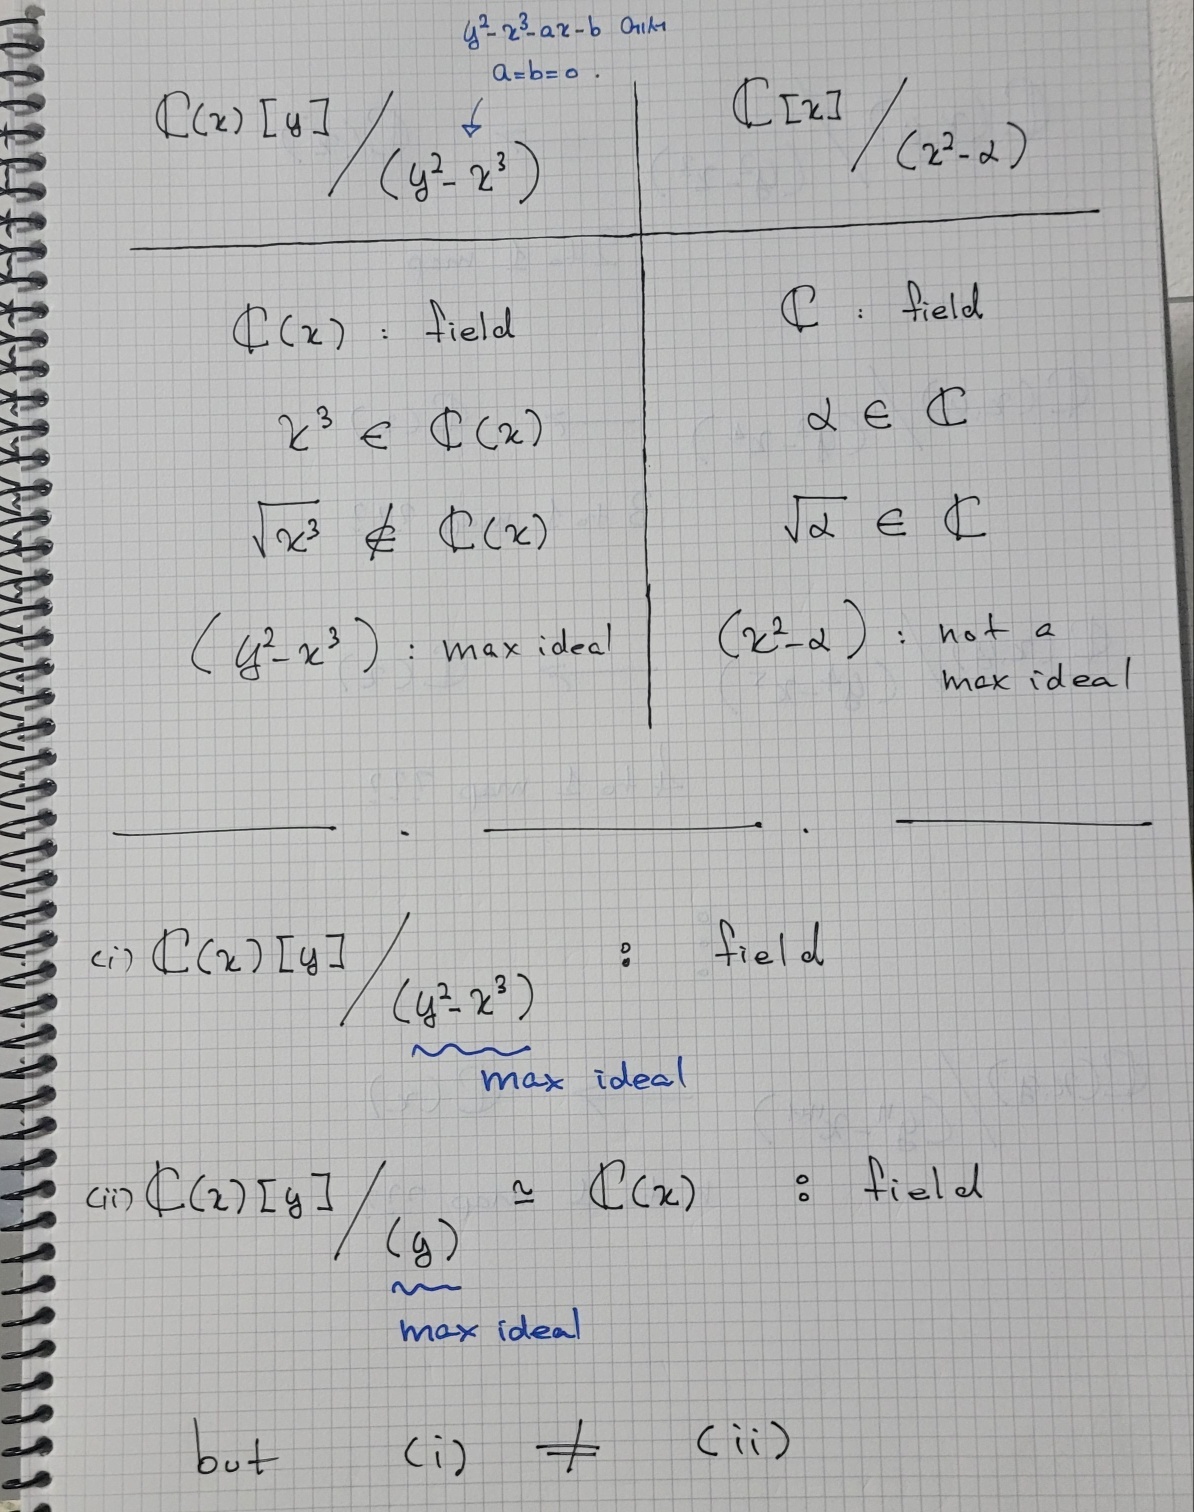 y²-x³-ax-b
a=b=0.
ℂ(x)[y] / (y²-x³)
ℂ[x] / (x²-α)
ℂ(x) : field
ℂ : field
x³ ∈ ℂ(x)
α ∈ ℂ
√x³ ∉ ℂ(x)
√α ∈ ℂ
(y²-x³) : max ideal
(x²-α) : not a
max ideal
(i) ℂ(x)[y] / (y²-x³) : field
max ideal
(ii) ℂ(x)[y] / (y) ≃ ℂ(x) : field
max ideal
but (i) ≠ (ii)